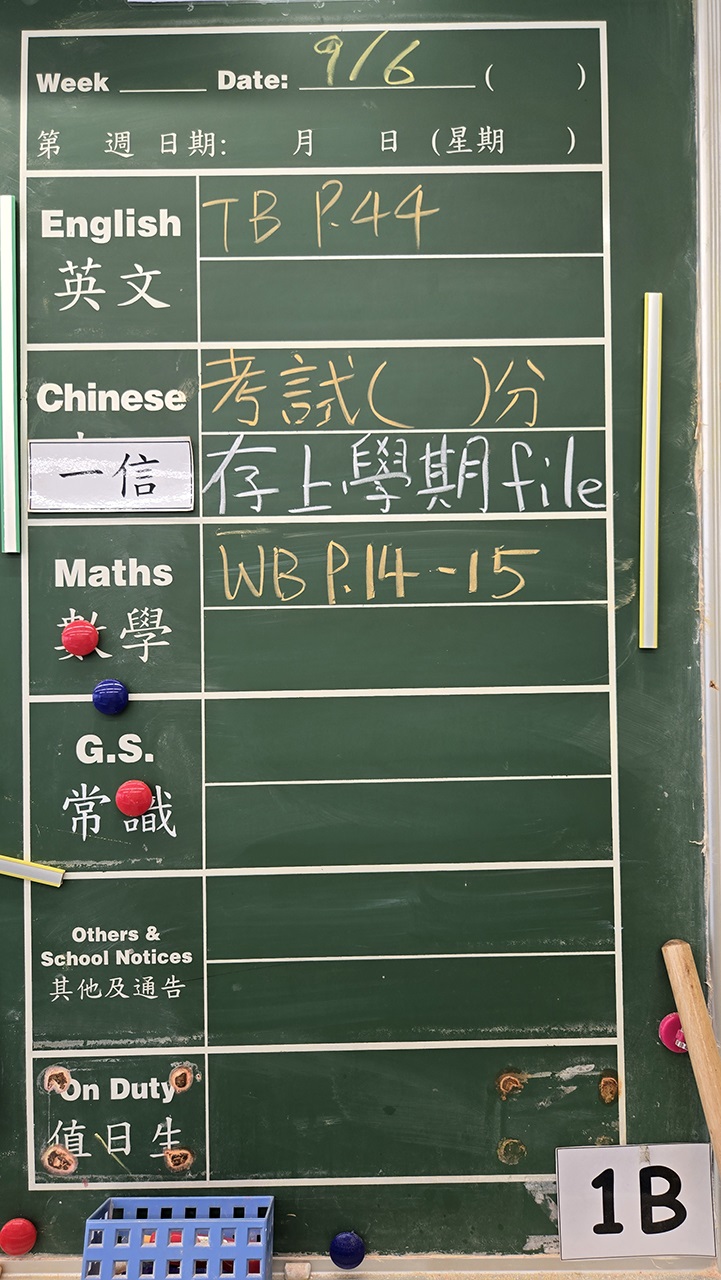 Week ______ Date: 9/6 (      )
第 週 日期: 月 日 (星期 )
English TB P.44
英文
Chinese 考試( )分
一信 存上學期file
Maths WB P.14-15
數學
G.S.
常識
Others &
School Notices
其他及通告
On Duty
值日生
1B